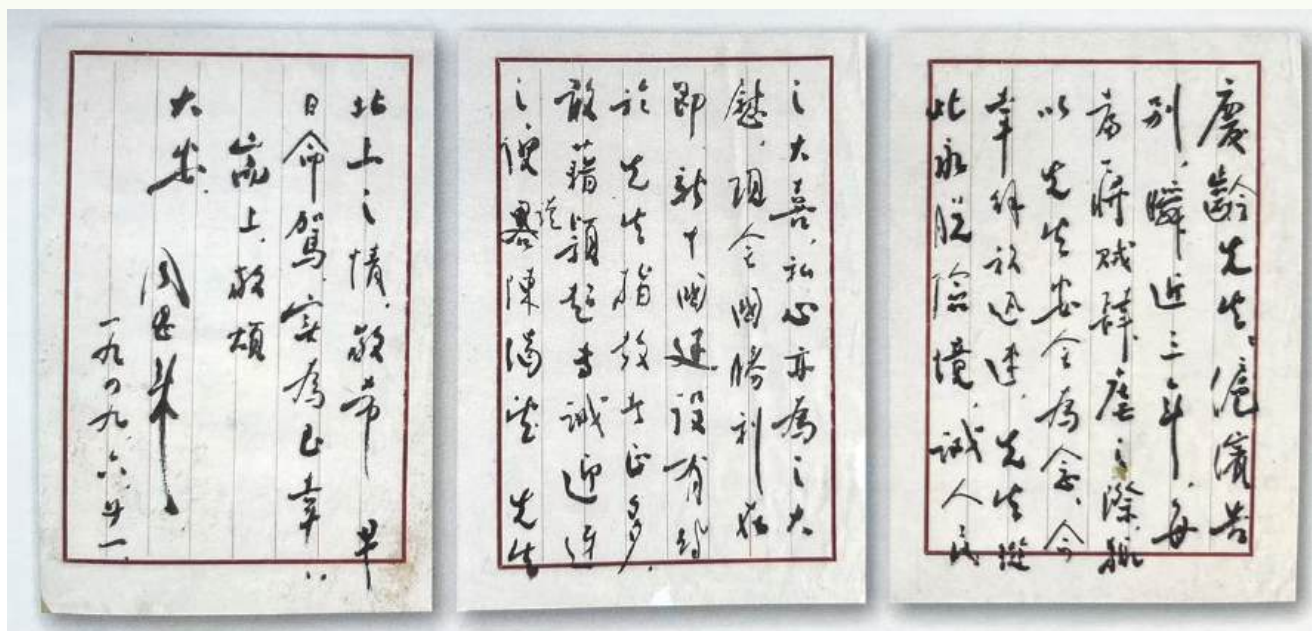 慶齡先生。滬濱告
別，瞬近三年，每
當蔣賊肆虐之際，輒
以先生安全為念。今
幸解放迅速，先生從
此永脫險境，誠人民
之大喜，私心亦為之大
慰。現全國勝利在
即，新中國建設有待
於先生指教者正多，
敢藉穎超專誠迎迓
之便，謹畧陳渴望先生
北上之情。敬希早
日命駕，實為至幸。
耑上，敬頌
大安
周恩来
一九四九、六、廿一